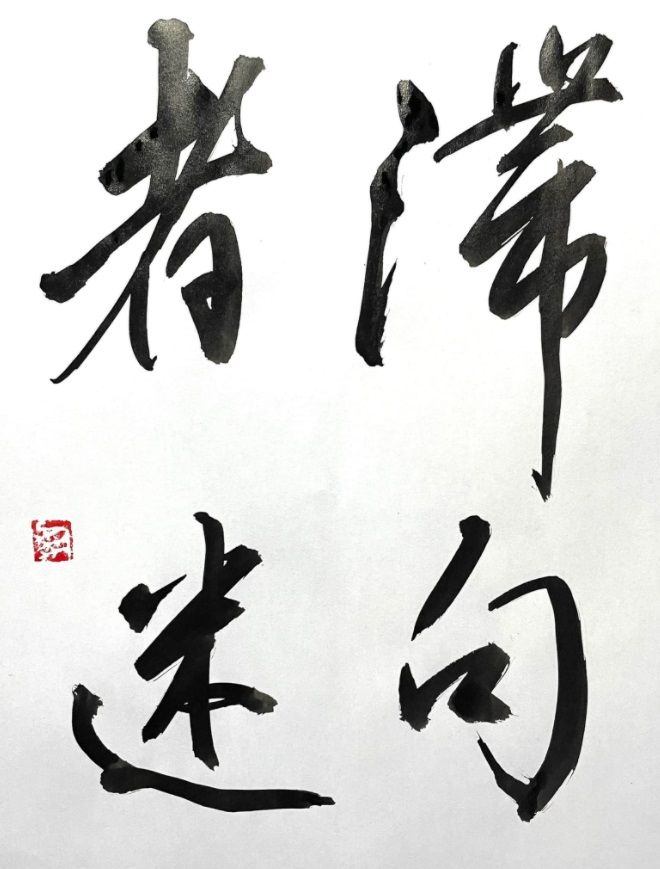 滞句
者迷